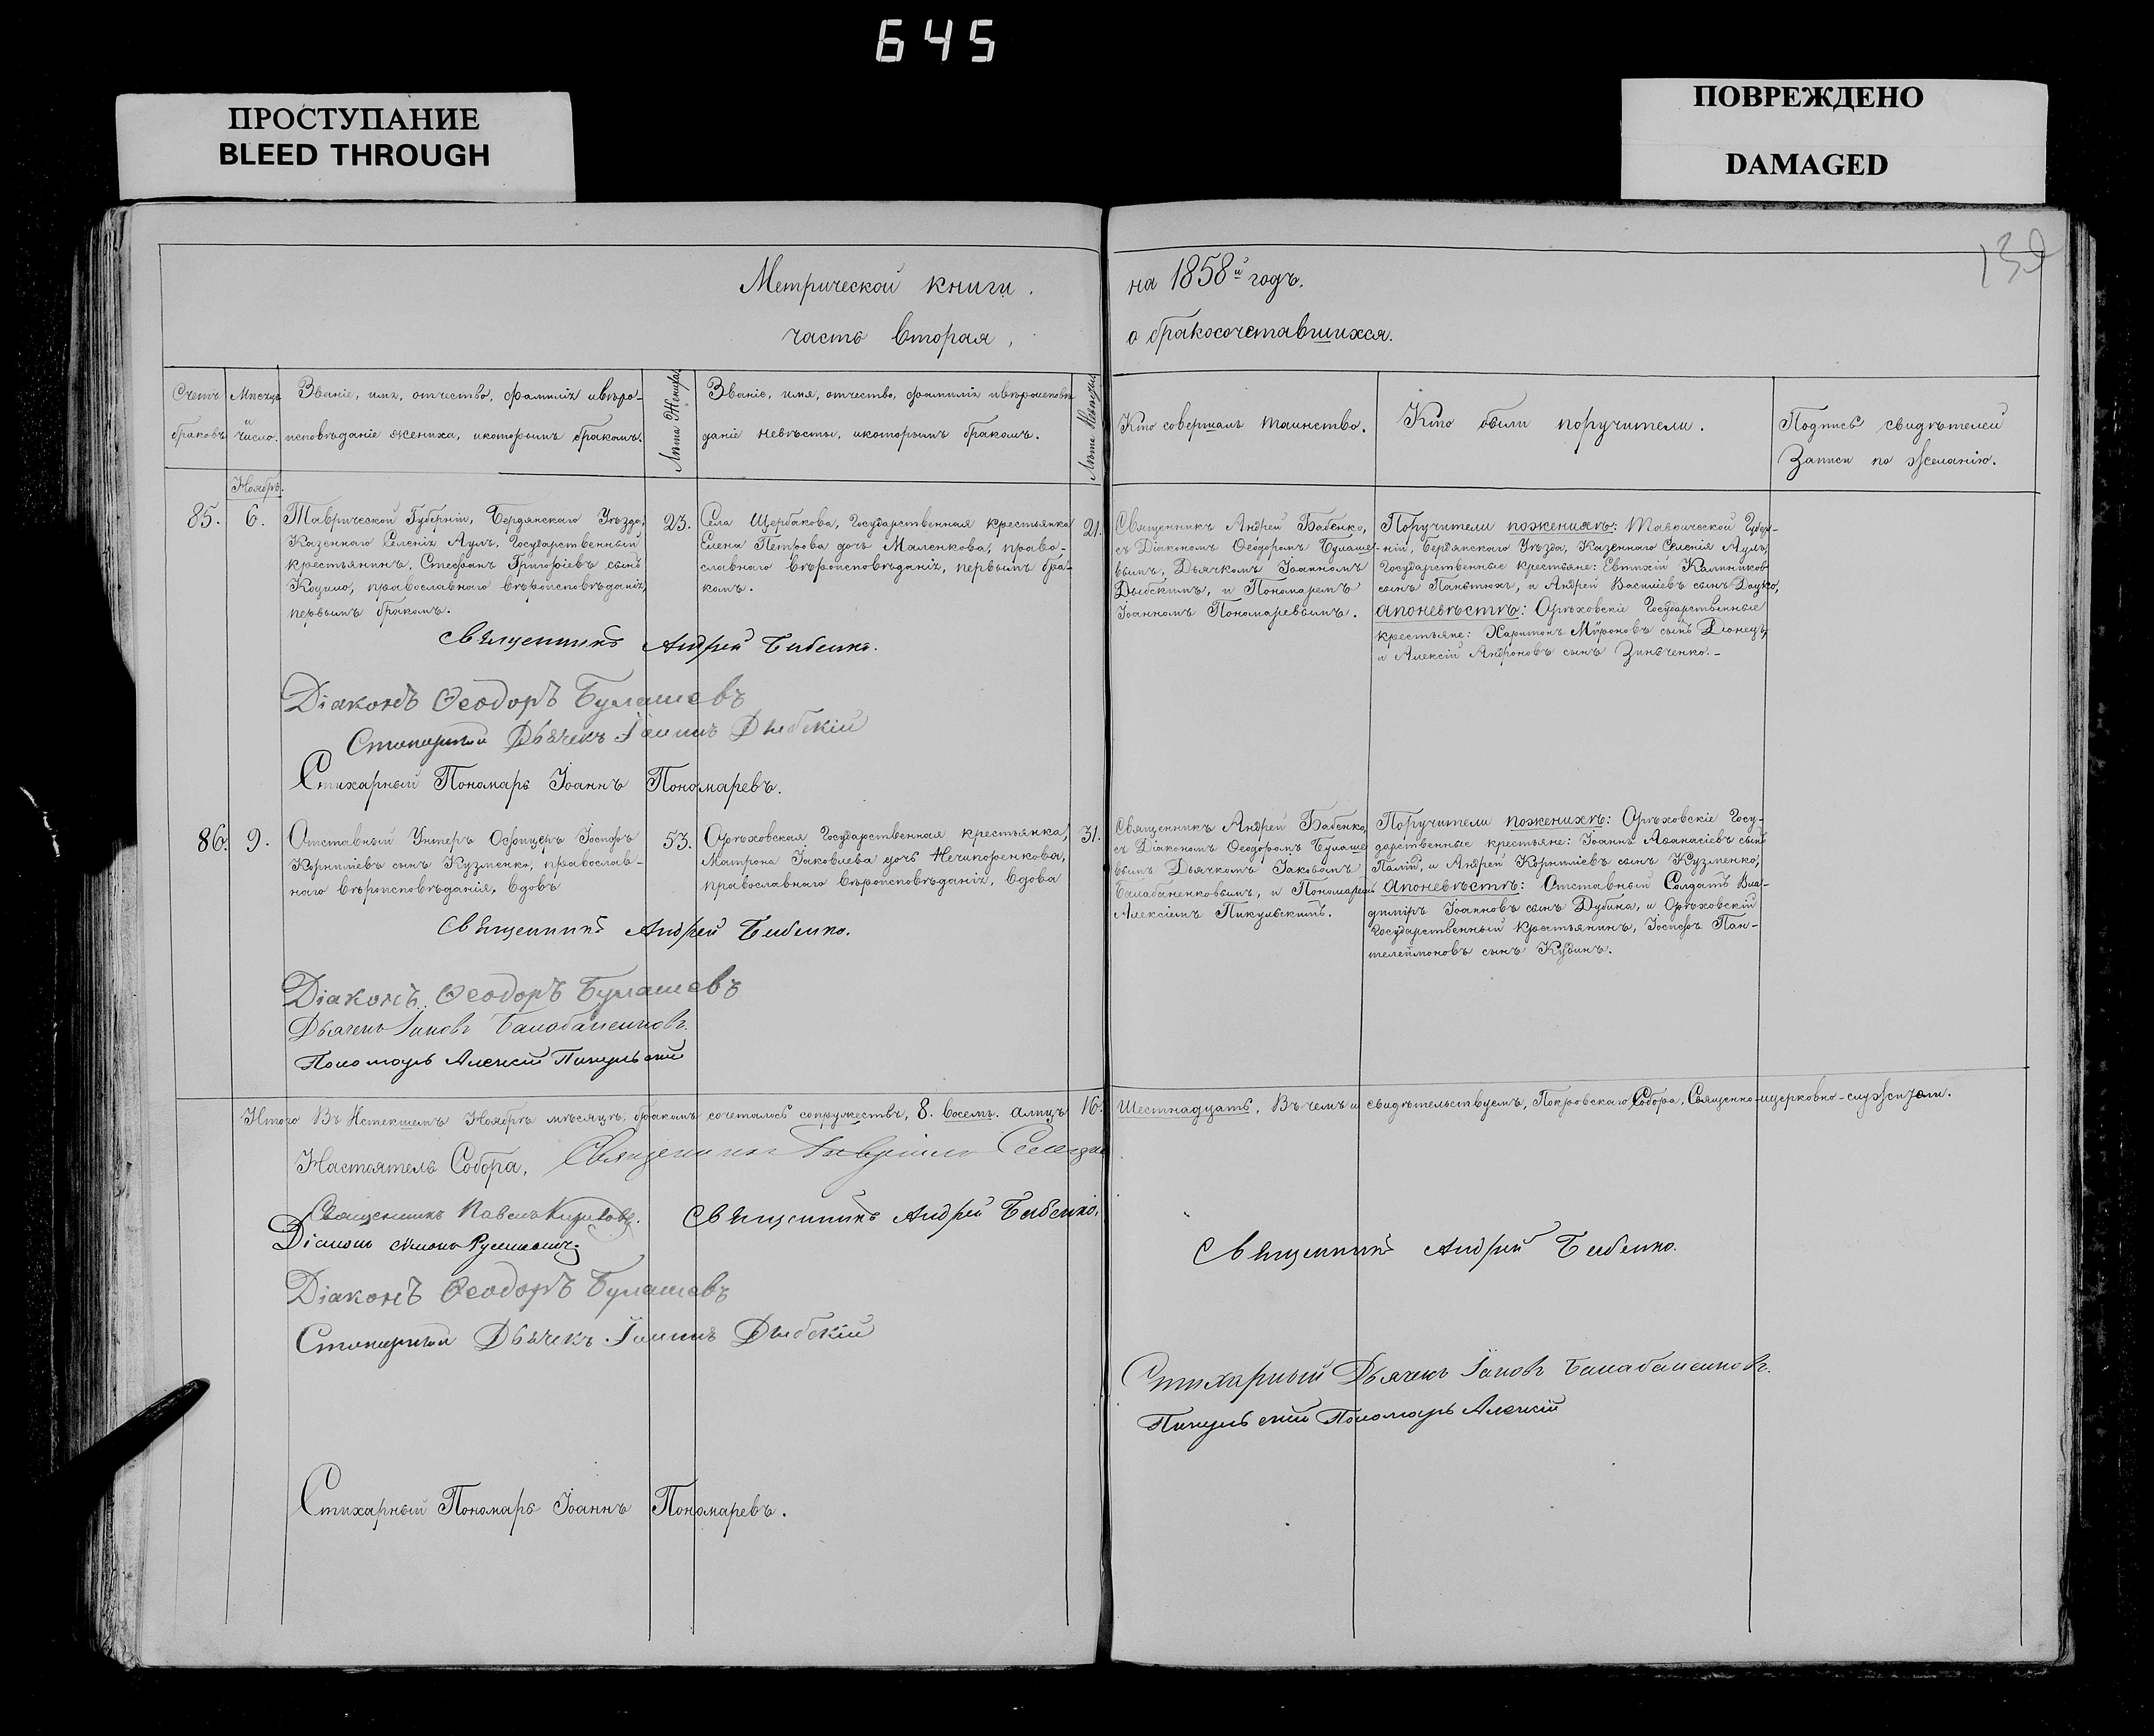 645
ПРОСТУПАНИЕ
BLEED THROUGH
ПОВРЕЖДЕНО
DAMAGED
139
Метрической книги.
часть вторая,
на 1858й годъ.
о бракосочетавшихся.
Счетъ браковъ.
Месяцъ и число.
Званіе, имя, отчество, фамилія и вѣро-
исповѣданіе жениха, и которымъ бракомъ.
Лѣта Жениха
Званіе, имя, отчество, фамилія и вѣроисповѣ-
даніе невѣсты, и которымъ бракомъ.
Лѣта Невѣсты
Кто совершалъ таинство.
Кто были поручители.
Подпись свидѣтелей
Записи по желанію.
Ноябрь.
85.
6.
Таврической Губерніи, Бердянскаго Уѣзда,
Казеннаго Селенія Аулъ, Государственный
крестьянинъ, Стефанъ Григоріевъ сынъ
Коцило, православнаго вѣроисповѣданія,
первымъ бракомъ.
23.
Села Щербакова, Государственная крестьянка
Елена Петрова дочь Маленкова, право-
славнаго вѣроисповѣданія, первымъ бра-
комъ.
21.
Священникъ Андрей Бабенко,
съ Діакономъ Ѳеодоромъ Булаше-
вымъ, Дьячкомъ Іоанномъ
Дыбскимъ, и Пономаремъ
Іоанномъ Пономаревымъ.
Поручители по женихѣ: Таврической Губер-
ніи, Бердянскаго Уѣзда, Казеннаго Селенія Аулъ,
Государственные крестьяне: Евтихій Калиников
сынъ Панѣтюхъ, и Андрей Василіевъ сынъ Доцко,
а по невѣстѣ: Орѣховскіе Государственные
крестьяне: Харитонъ Мѵроновъ сынъ Донецъ,
и Алексій Андроновъ сынъ Зинѣченко.-
Священникъ Андрей Бабенко.
Діаконъ Ѳеодоръ Булашевъ
Стихарный Дьячекъ Іоаннъ Дыбскій
Стихарный Пономарь Іоаннъ Пономаревъ.
86.
9.
Отставный Унтеръ Офицеръ Іосифъ
Корниліевъ сынъ Кузменко, православ-
наго вѣроисповѣданія, вдовъ
53.
Орѣховская Государственная крестьянка,
Матрона Іаковлева дочь Нечипоренкова,
православнаго вѣроисповѣданія, вдова
31.
Священникъ Андрей Бабенко,
съ Діакономъ Ѳеодоромъ Булаше
вымъ Дьячкомъ Іаковомъ
Балабаненковымъ, и Пономаремъ
Алексіемъ Пикульскимъ.
Поручители по женихѣ: Орѣховскіе Госу-
дарственные крестьяне: Іоаннъ Аѳанасіевъ сынъ
Палій, и Андрей Корниліевъ сынъ Кузменко;
а по невѣстѣ: Отставный Солдатъ Вла-
диміръ Іоанновъ сынъ Дубина, и Орѣховскій
Государственный крестьянинъ, Іосифъ Пан-
телеймоновъ сынъ Кудинъ.
Священникъ Андрей Бабенко.
Діаконъ Ѳеодоръ Булашевъ
Дьячекъ Іаковъ Балабаненковъ.
Пономарь Алексій Пикульскій
Итого Въ Истекшемъ Ноябрѣ мѣсяцѣ, бракомъ сочеталось супружествъ, 8. восемь. а лицъ 16. Шестнадцать. Въ чемъ и свидѣтельствуемъ, Покровскаго Собора, Священно-и церковно-служители.
Настоятель Собора, Священникъ Гавріилъ
Священникъ Павелъ
Священникъ Андрей Бабенко.
Діаконъ
Священникъ Андрей Бабенко.
Діаконъ Ѳеодоръ Булашевъ
Стихарный Дьячекъ Іоаннъ Дыбскій
Стихарный Дьячекъ Іаковъ Балабаненковъ.
Пикульскій Пономарь Алексій
Стихарный Пономарь Іоаннъ Пономаревъ.